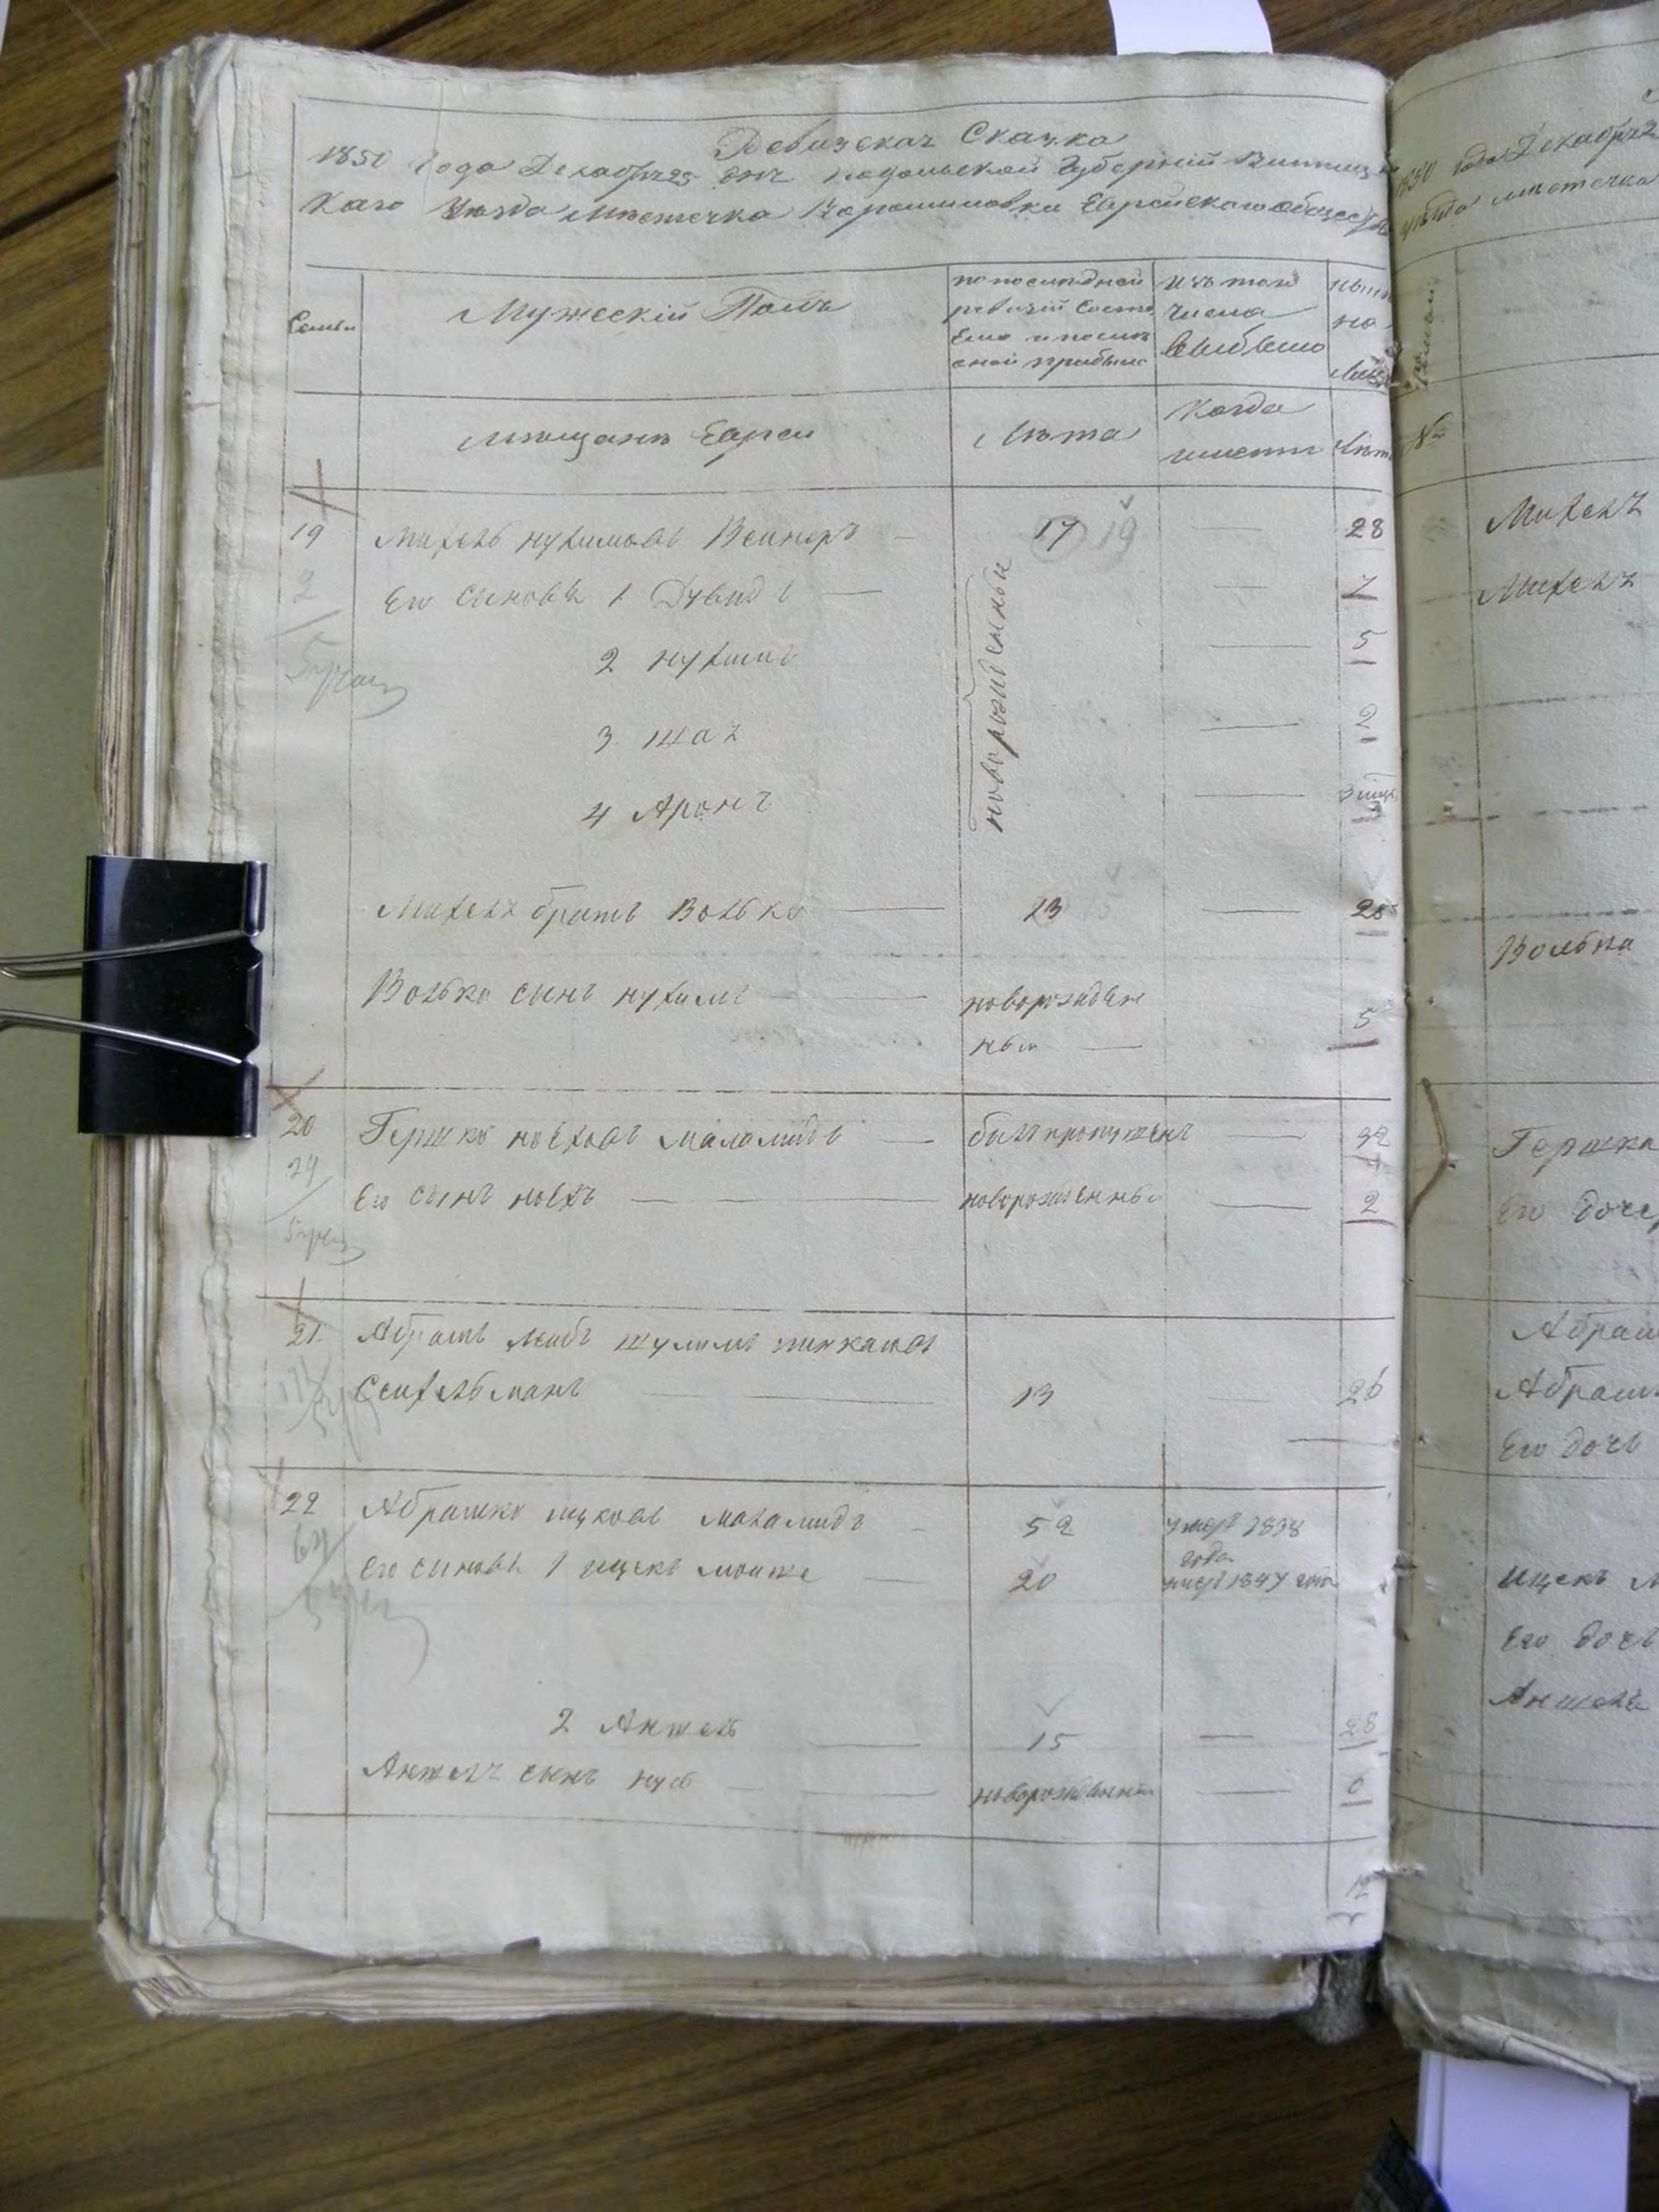 Ревизская Сказка
1850 Года Декабря 25 дня Подольской Губерний Винниц
каго Уезда Местечка Ворошиловки Еврейскаго обществ
Семьи
Мужеский Полъ
по последней
ревизій состо
яло и после
оной прибыло
изъ того
числа
выбыло
ныне
на
лицо
мещане Евреи
Лета
Когда
именно
Лета
19 Михель Нухимовъ Вейнеръ 17 19 — 28
2
Его сыновья 1 Дувидъ — — 7
2 нухимъ — 5
3 шая — 2
4 Аронъ — 3
новорожденные
Михеля братъ Волько — 13 15 — 25
Волька сынъ нухимъ — новорожден
ный — 5
20 Гершко ноеховъ маламидъ — былъ пропущенъ — 32
24
Его сынъ ноехъ — новорожденный — 2
21. Абрамъ Лейбъ шулимъ пинкасовъ
Сейхельманъ — 13 — 26
22 Абрамко ицковъ маламидъ — 52 умеръ 1838
года
64
Его сыновья 1 ицекъ мошке — 20 умеръ 1847 года
2 Аншель — 15 — 28
Аншеля сынъ — новорожденный — 6
12
1850 года Декабря 2
уезда местечка
№
Михеля
Михеля
Волька
Гершка
Его доче
Абрам
Абрам
Его дочь
Ицекъ м
Его дочь
Аншеля